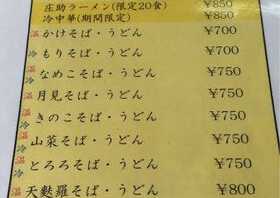 庄助ラーメン(限定20食) ¥850
冷中華(期間限定) ¥850
温 かけそば・うどん ¥700
冷 もりそば・うどん ¥700
温冷 なめこそば・うどん ¥750
温 月見そば・うどん ¥750
温 きのこそば・うどん ¥750
温冷 山菜そば・うどん ¥750
温冷 とろろそば・うどん ¥750
温冷 天麩羅そば・うどん ¥800